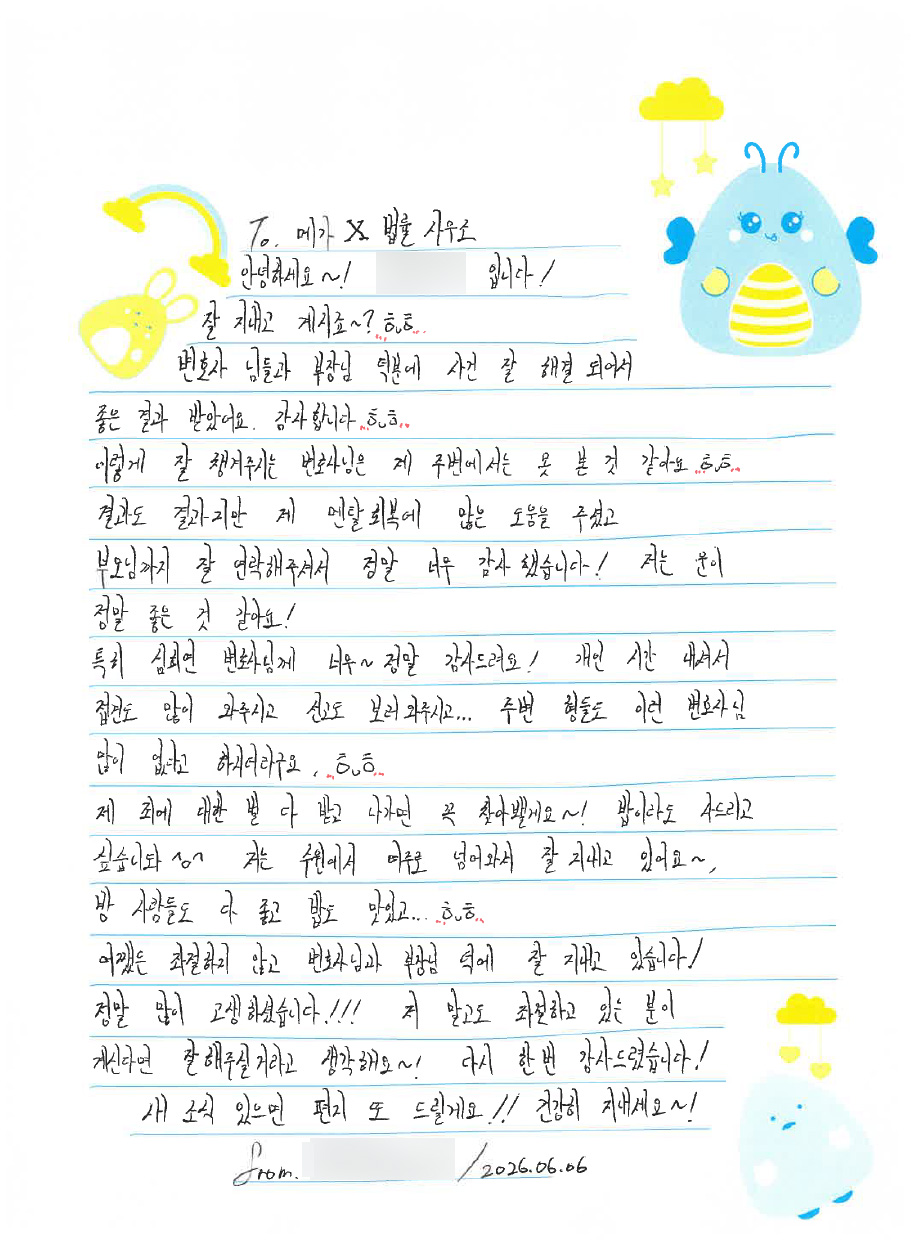 To. 메가 X 법률 사무소
안녕하세요~! 입니다!
잘 지내고 계시죠~? ㅎㅅㅎ
변호사 님들과 부장님 덕분에 사건 잘 해결 되어서
좋은 결과 받았어요. 감사합니다 ㅎㅅㅎ
이렇게 잘 챙겨주시는 변호사님은 제 주변에서는 못 본 것 같아요 ㅎㅅㅎ
결과도 결과지만 제 멘탈 회복에 많은 도움을 주셨고
부모님까지 잘 연락해주셔서 정말 너무 감사했습니다! 저는 운이
정말 좋은 것 같아요!
특히 심희연 변호사님께 너무~ 정말 감사드려요! 개인 시간 내셔서
접견도 많이 와주시고 선고도 보러 와주시고... 주변 형들도 이런 변호사님
많이 없다고 하시더라구요. ㅎㅅㅎ
제 죄에 대한 벌 다 받고 나가면 꼭 찾아뵐게요~! 밥이라도 사드리고
싶습니다 ^0^ 저는 수원에서 여주로 넘어와서 잘 지내고 있어요~,
방 사람들도 다 좋고 밥도 맛있고... ㅎㅅㅎ
어쨌든 좌절하지 않고 변호사님과 부장님 덕에 잘 지내고 있습니다!
정말 많이 고생하셨습니다!!! 저 말고도 좌절하고 있는 분이
계신다면 잘해주실거라고 생각해요~! 다시 한번 감사드렸습니다!
새 소식 있으면 편지 또 드릴게요!! 건강히 지내세요~!
from. / 2026.06.06